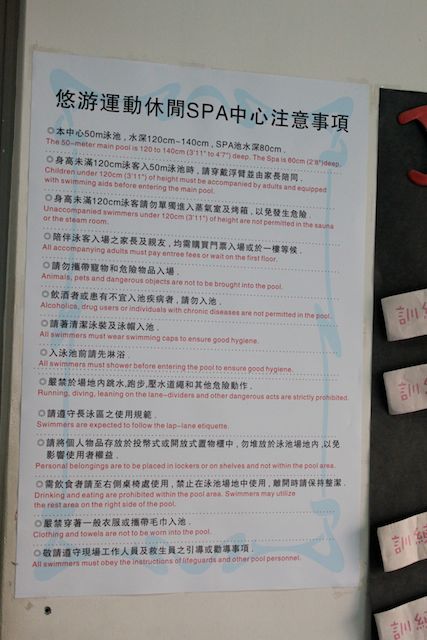 悠游運動休閒SPA中心注意事項
◎本中心50m泳池，水深120cm~140cm，SPA池水深80cm．
The 50-meter main pool is 120 to 140cm (3'11" to 4'7") deep. The Spa is 60cm (2'8")deep.
◎身高未滿120cm泳客入50m泳池時，請穿戴浮臂並由家長陪同．
Children under 120cm (3'11") of height must be accompanied by adults and equipped
with swimming aids before entering the main pool.
◎身高未滿120cm泳客請勿單獨進入蒸氣室及烤箱，以免發生危險．
Unaccompanied swimmers under 120cm (3'11") of height are not permitted in the sauna
or the steam room.
◎陪伴泳客入場之家長及親友，均需購買門票入場或於一樓等候．
All accompanying adults must pay entree fees or wait on the first floor.
◎請勿攜帶寵物和危險物品入場．
Animals, pets and dangerous objects are not to be brought into the pool.
◎飲酒者或患有不宜入池疾病者，請勿入池．
Alcoholics, drug users or individuals with chronic diseases are not permitted in the pool.
◎請著清潔泳裝及泳帽入池．
All swimmers must wear swimming caps to ensure good hygiene.
◎入泳池前請先淋浴．
All swimmers must shower before entering the pool to ensure good hygiene.
◎嚴禁於場地內跳水,跑步,壓水道繩和其他危險動作．
Running, diving, leaning on the lane-dividers and other dangerous acts are strictly prohibited.
◎請遵守長泳區之使用規範．
Swimmers are expected to follow the lap-lane etiquette.
◎請將個人物品存放於投幣式或開放式置物櫃中，勿堆放於泳池場地內，以免
影響使用者權益．
Personal belongings are to be placed in lockers or on shelves and not within the pool area.
◎需飲食者請至右側桌椅處使用，禁止在泳池場地中使用，離開時請保持整潔．
Drinking and eating are prohibited within the pool area. Swimmers may utilize
the rest area on the right side of the pool.
◎嚴禁穿著一般衣服或攜帶毛巾入池．
Clothing and towels are not to be worn into the pool.
◎敬請遵守現場工作人員及救生員之引導或勸導事項．
All swimmers must obey the instructions of lifeguards and other pool personnel.
訓
訓
訓練
訓練